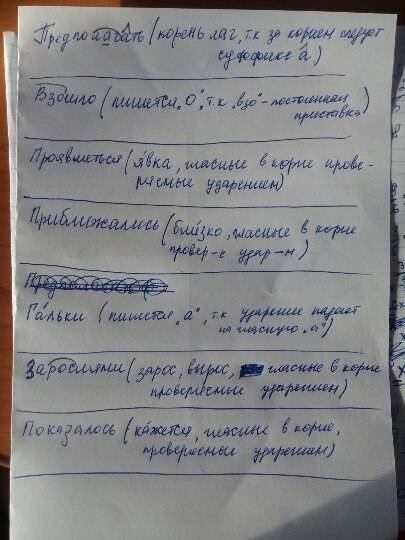 Предполагать (корень лаг, т.к за корнем следует
суффикс а̂)
Взошло (пишется „О“, т.к. „взо“-постоенная
приставка)
Проявляеться (я́вка, гласные в корне прове-
ряемые ударением)
Приближались (бли́зко, гласные в корне
провер-е удар-м.)
Га́льки (пишется „а“, т.к. ударение падает
на гласную „а“)
Зарослями (зарос, вырос, гласные в корне
проверяемые ударением)
Показалось (ка́жется, гласные в корне,
проверяемые ударением)